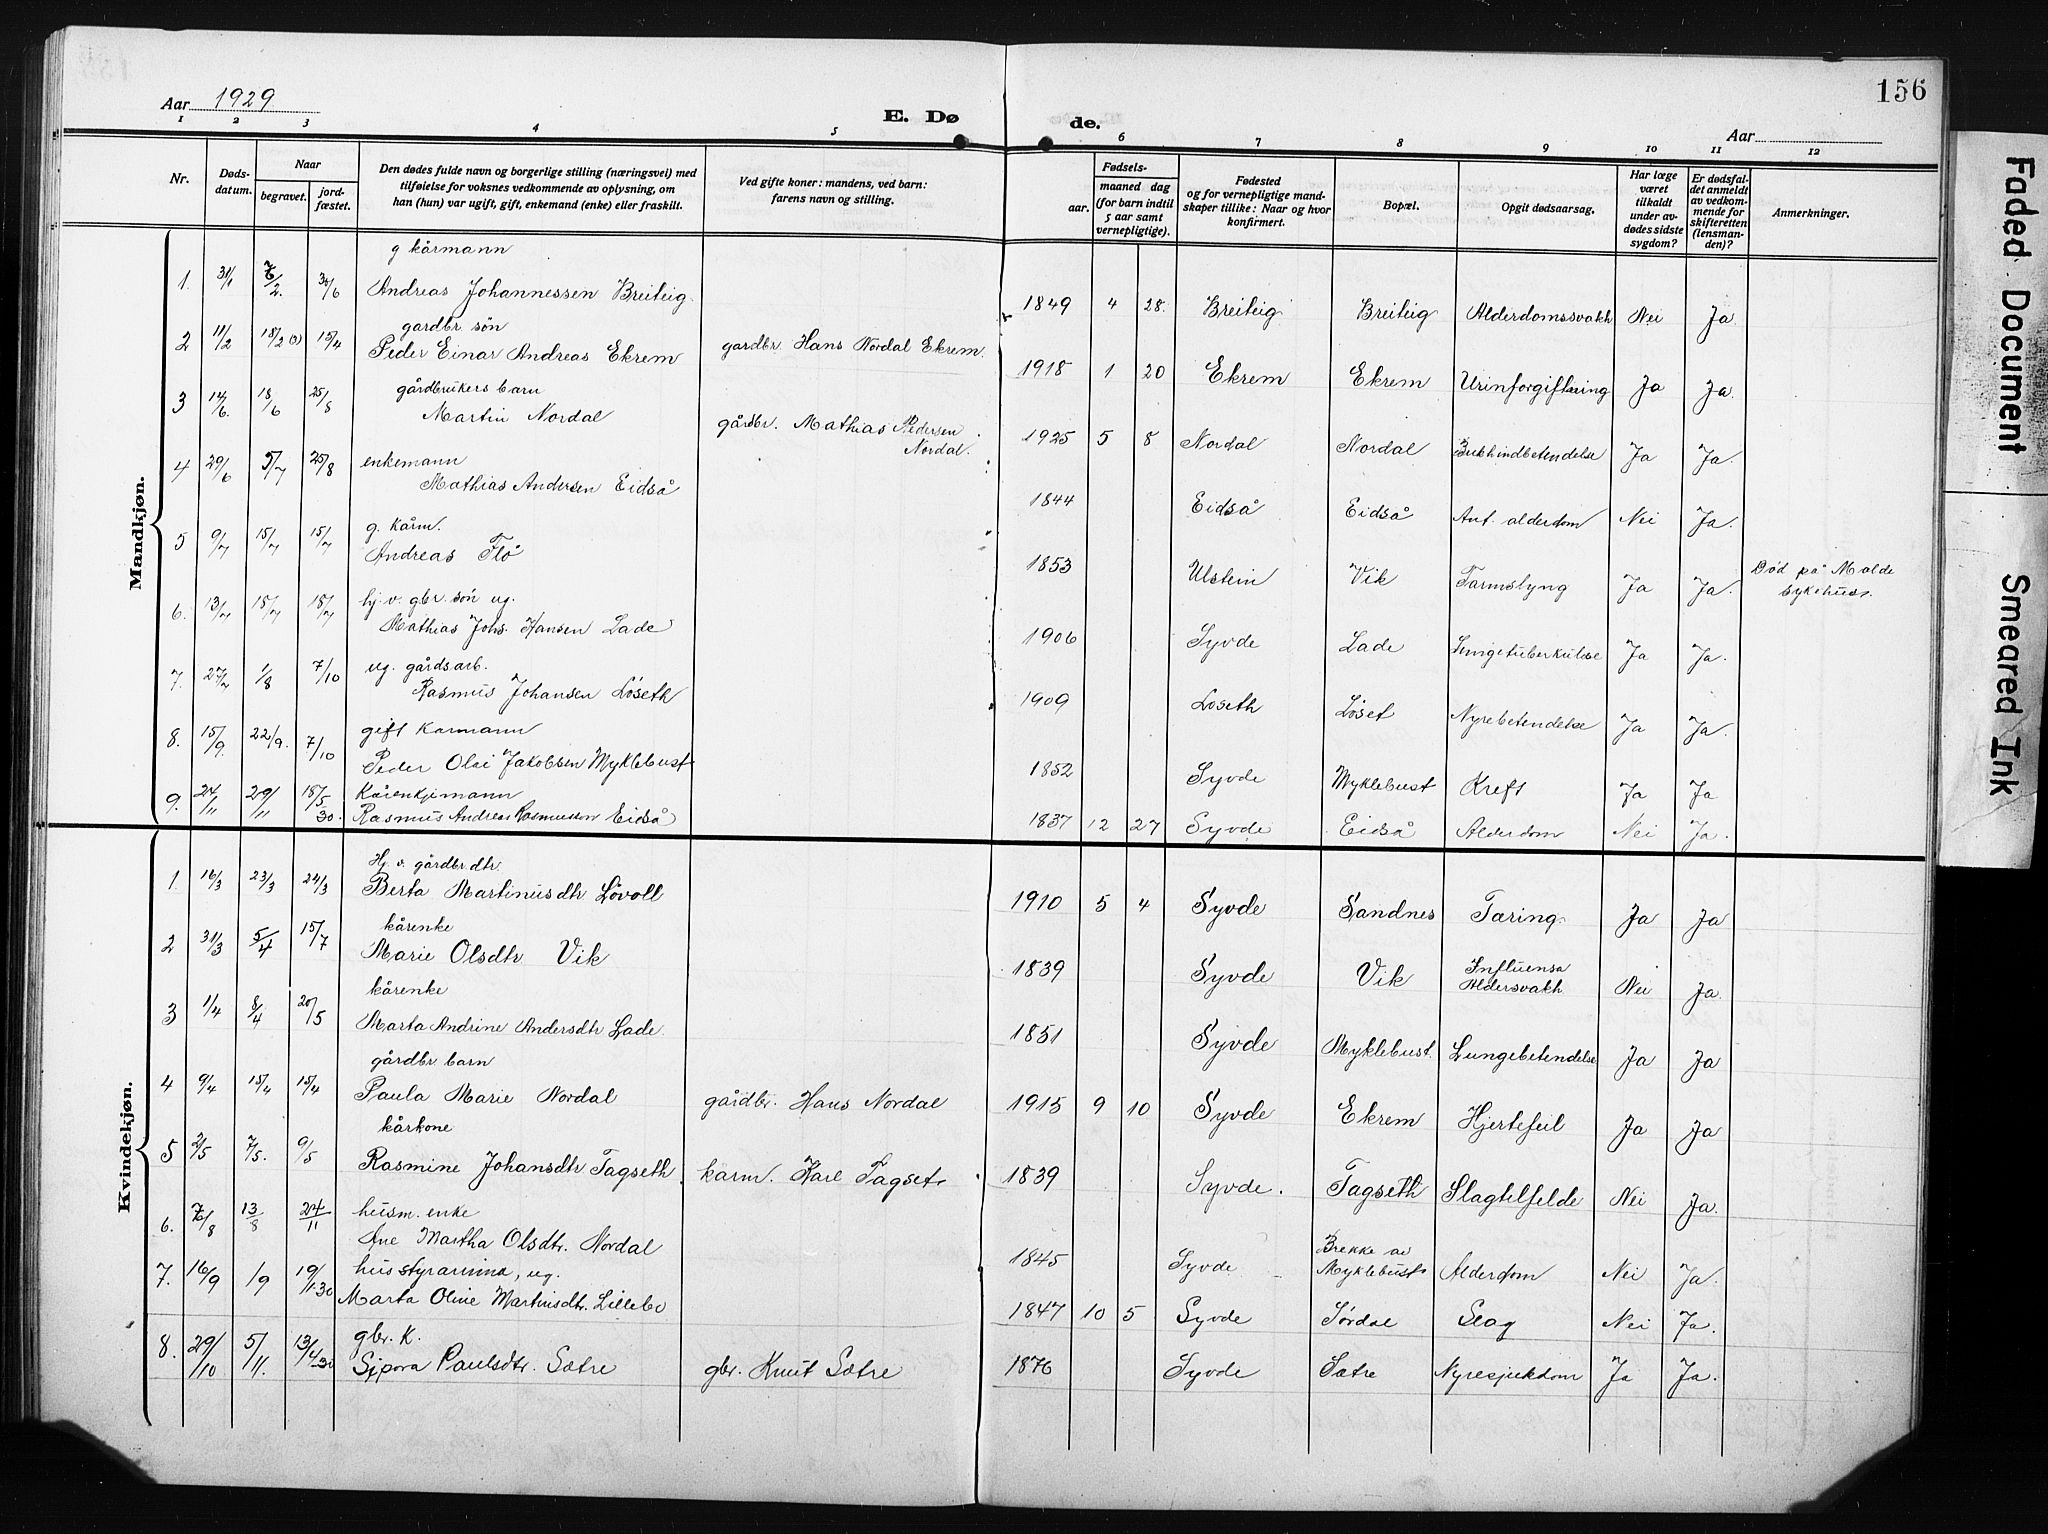 156
Aar 1929
E. Dø
de.
Aar
1 2 3 4 5 6 7 8 9 10 11 12
Nr.
Døds-
datum.
Naar
begravet.
jord-
fæstet.
Den dødes fulde navn og borgerlige stilling (næringsvei) med
tilføielse for voksnes vedkommende av oplysning, om
han (hun) var ugift, gift, enkemand (enke) eller fraskilt.
Ved gifte koner: mandens, ved barn:
farens navn og stilling.
Fødsels-
aar.
maaned dag
(for barn indtil
5 aar samt
vernepligtige).
Fødested
og for vernepligtige mand-
skaper tillike: Naar og hvor
konfirmert.
Bopæl.
Opgit dødsaarsag.
Har læge
været
tilkaldt
under av-
dødes sidste
sygdom?
Er dødsfal-
det anmeldt
av vedkom-
mende for
skifteretten
(lensman-
den)?
Anmerkninger.
Mandkjøn.
g kårmann
1. 31/1 7/2. 30/6 Andreas Johannessen Breiteig. 1849 4 28. Breiteig Breiteig Alderdomssvakh Nei Ja
gardbr. søn
2 11/2 18/2 (3) 15/4 Peder Einar Andreas Ekrem gardbr. Hans Nordal Ekrem. 1918 1 20 Ekrem Ekrem Urinforgiftning Ja Ja
gårdbrukers barn
3 14/6. 18/6 25/8 Martin Nordal gårdbr. Mathias Pedersen
Nordal. 1925 5 8 Nordal Nordal Bukhindbetendelse Ja Ja.
enkemann
4 29/6 5/7 25/8 Mathias Andersen Eidså 1844 Eidså Eidså Ant. alderdom Nei Ja.
g. kårm.
5 9/7 15/7 15/7 Andreas Flø 1853 Ulstein Vik Tarmslyng Ja Ja. Død på Molde
sykehus.
hj. v. gbr. søn ug.
6. 13/7 18/7 18/7 Mathias Johs. Hansen Lade 1906 Syvde Lade Lungetuberkulose Ja Ja.
ug. gårdsarb.
7. 27/7 1/8 7/10 Rasmus Johansen Løseth 1909 Løseth Løset Nyrebetendelse Ja Ja.
gift Karmann
8. 15/9. 22/9. 7/10 Peder Olai Jakobsen Myklebust 1852 Syvde Myklebust Kreft Ja Ja
Kårenkjemann
9. 24/11 29/11 18/5 30. Rasmus Andreas Rasmussen Eidså 1837 12 27 Syvde Eidså Alderdom Nei Ja.
Kvindekjøn.
Hj. v. gårdbr dtr
1. 16/3 23/3 24/3 Berta Martinusdtr Løvoll 1910 5 4 Syvde Sandnes Tæring. Ja Ja
kårenke
2 31/3 5/4 15/7 Marie Olsdtr Vik 1839 Syvde Vik Influensa
Aldersvakh. Nei Ja.
kårenke
3 1/4 8/4 20/5 Marta Andrine Andersdtr Lade. 1851 Syvde Myklebust. Lungebetendelse Ja Ja
gårdbr. barn
4 9/4 15/4 15/4 Paula Marie Nordal gårdbr. Hans Nordal 1915 9 10 Syvde Ekrem Hjertefeil Ja Ja
kårkone
5 2/5 7/5. 9/5 Rasmine Johansdtr Tagseth. karm. Karl Tagset 1839 Syvde. Tagseth Slagtilfelde Nei Ja.
husm. enke
6. 7/8 13/8 24/11 Ane Martha Olsdtr. Nordal 1845 Syvde Brekke av
Myklebust Alderdom Nei Ja.
husstyrarinna, ug.
7. 16/9 19 19/11-30 Marta Oline Martinsdtr. Lillebø 1847 10 5 Syvde Sørdal Slag Nei Ja.
gbr. K.
8. 29/10 5/11. 13/4 30 Sipora Paulsdtr. Sætre gbr. Knut Sætre 1876 Syvde Sætre Nyresjukdom Ja Ja.
Faded Document
Smeared Ink